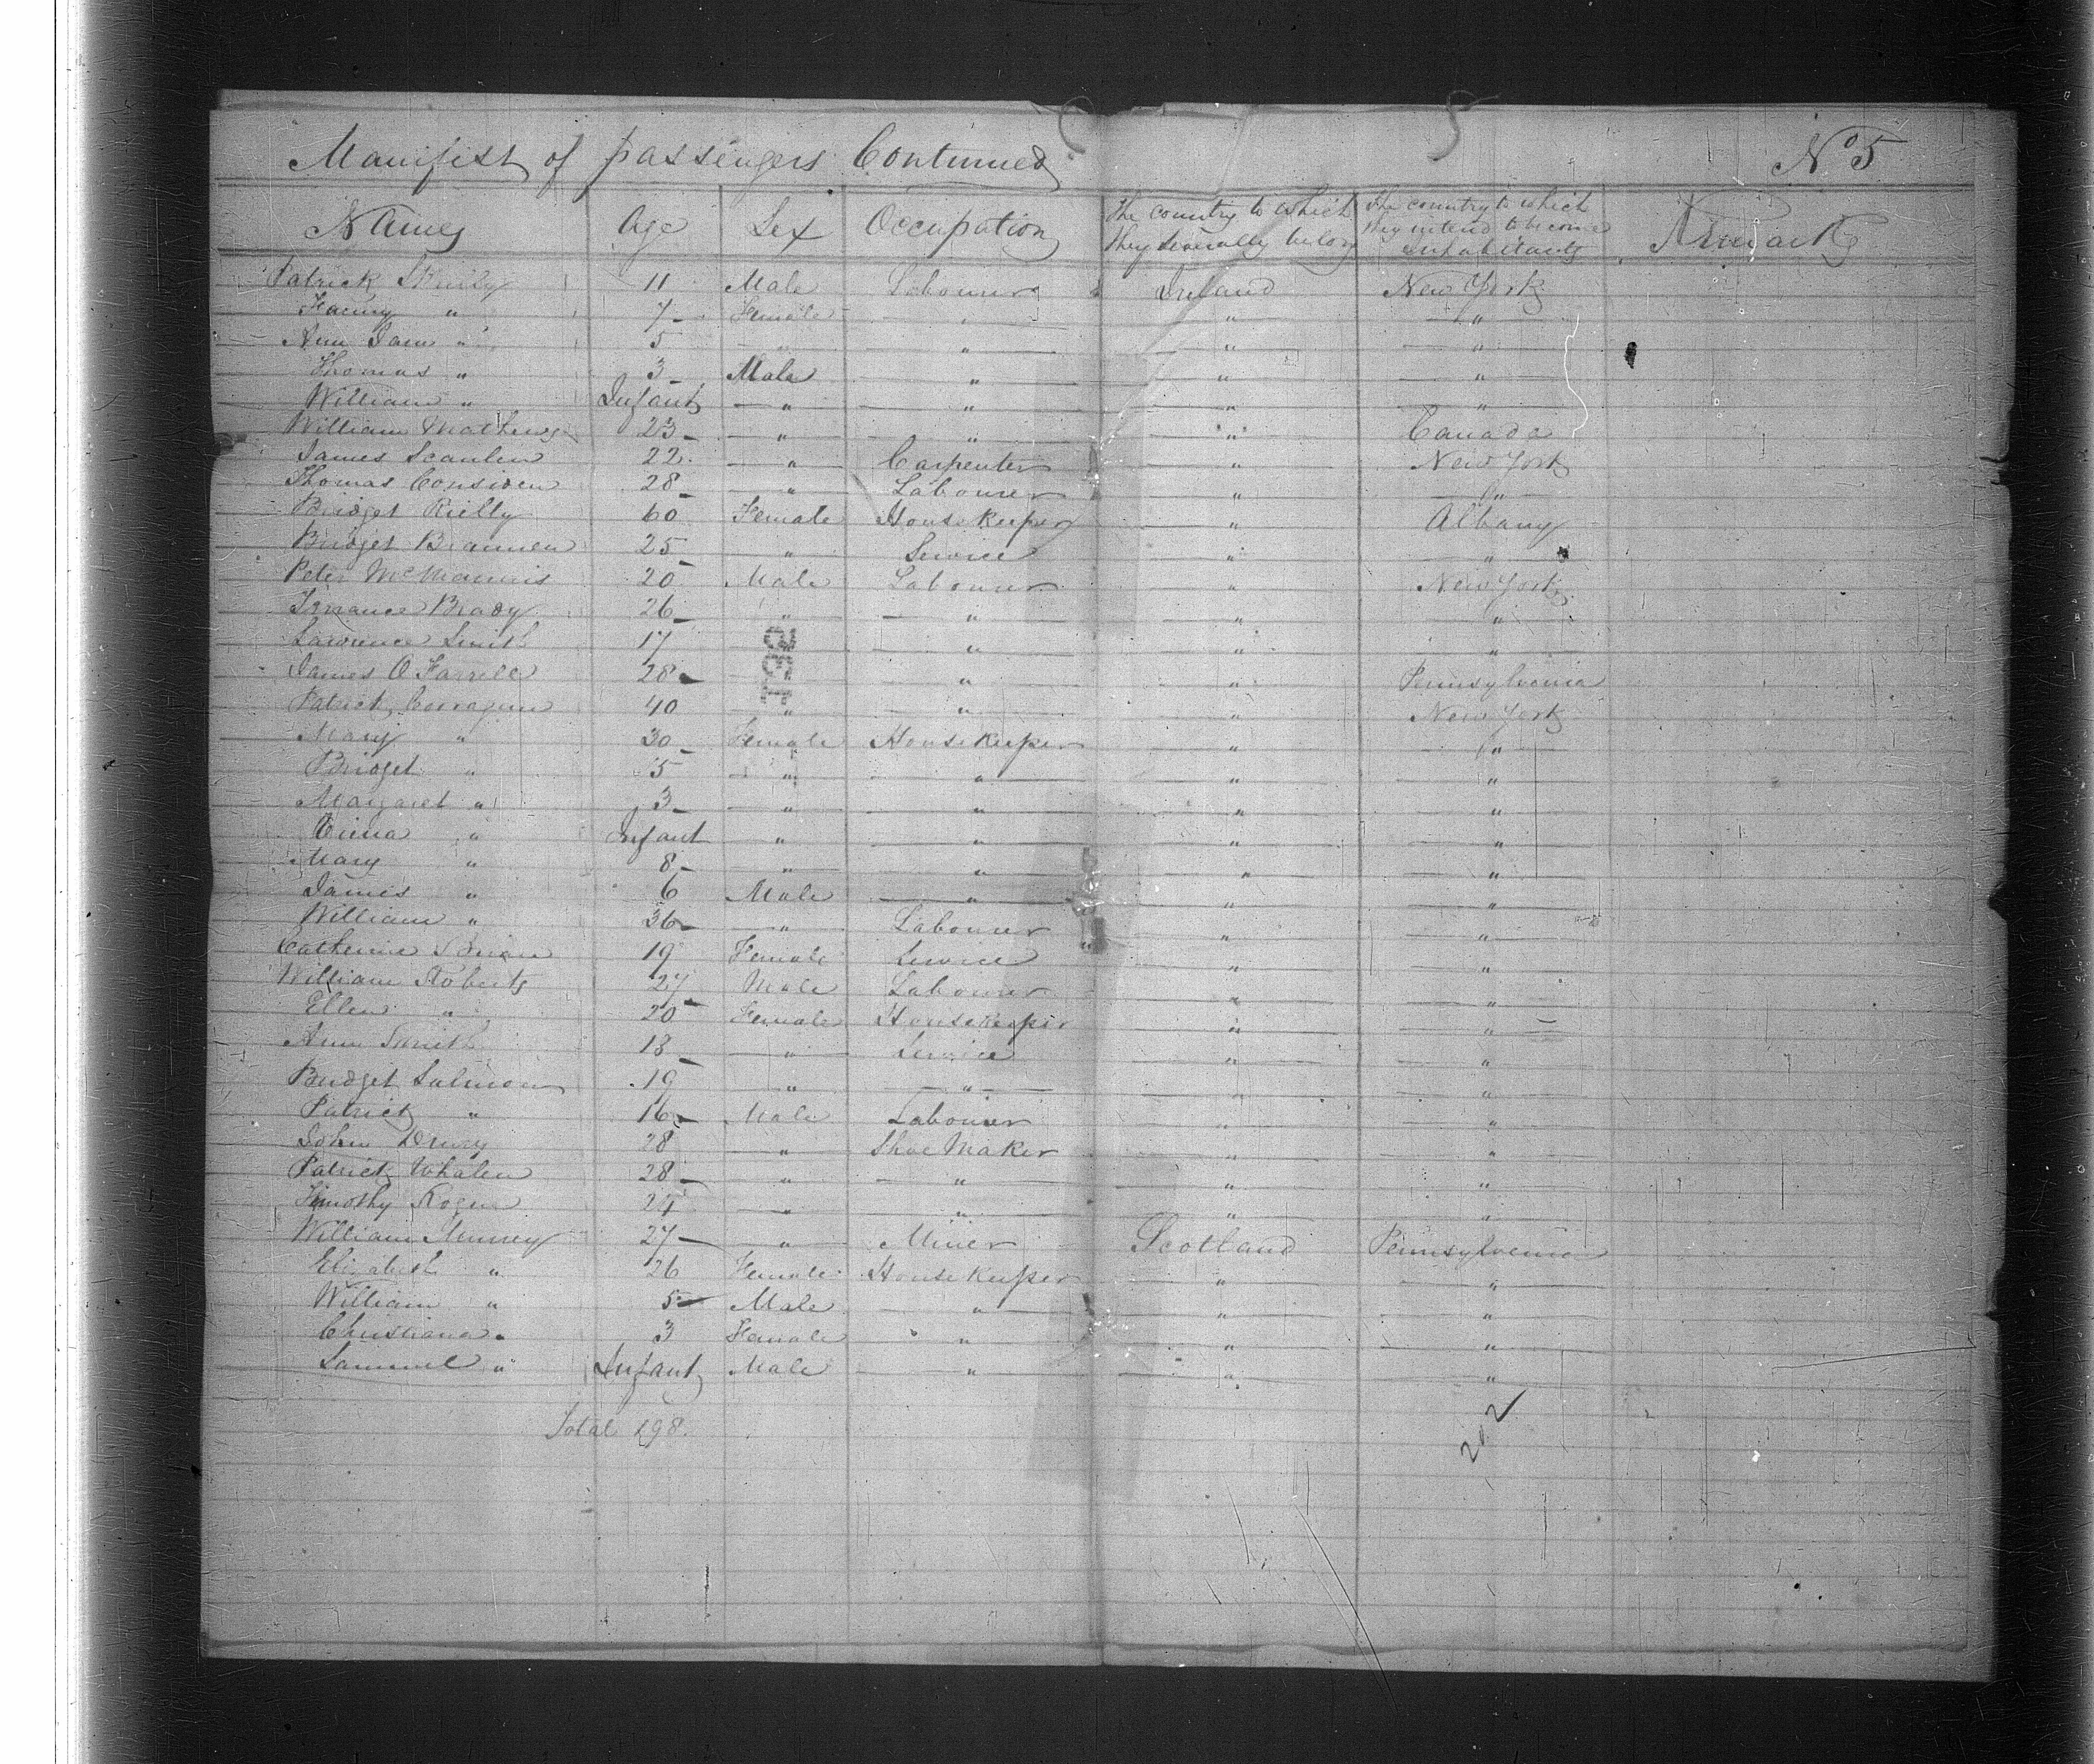 Manifist of passengers Continued No 5
Names Age Sex Occupation The country to which they severally belong The country to which they intend to become Inhabitants Remarks
Patrick 11 Male Labourer Ireland New York
" 7 Female " " "
Ann Jane " 5 " " " "
Thomas " 3 Male " " "
William " Infant " " " "
William Mathews 23 " " " Canada
James Scanlen 22 " Carpenter " New York
Thomas Considen 28 " Labourer " "
Bridget Rielly 60 Female House Keeper " Albany
Bridget Brannen 25 " Service " "
Peter McMannis 20 Male Labourer " New York
Terrance Brady 26 " " " "
Lawrence Smith 17 " " " "
James O Farrell 28 " " " Pennsylvania
Patrick 40 " " " New York
Mary " 30 Female House Keeper " "
Bridget " 5 " " " "
Margaret " 3 " " " "
" Infant " " " "
Mary " 8 " " " "
James " 6 Male " " "
William " 36 " Labourer " "
Catherine 19 Female Service " "
William Roberts 27 Male Labourer " "
Ellen " 20 Female House Keeper " "
Ann Smith 18 " Service " "
Bridget Salmon 19 " " " "
Patrick " 16 Male Labourer " "
John Drury 28 " Shoe Maker " "
Patrick Whalen 28 " " " "
Timothy 24 " " " "
William 27 " Miner Scotland Pennsylvania
Elizabeth " 26 Female House Keeper " "
William " 5 Male " " "
Christiana " 3 Female " " "
Samuel " Infant Male " " "
Total 198